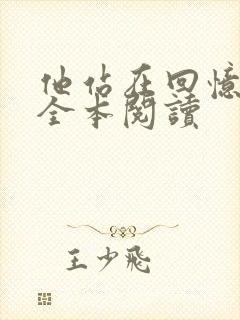 他佔在回憶
全本閱讀
王少飛